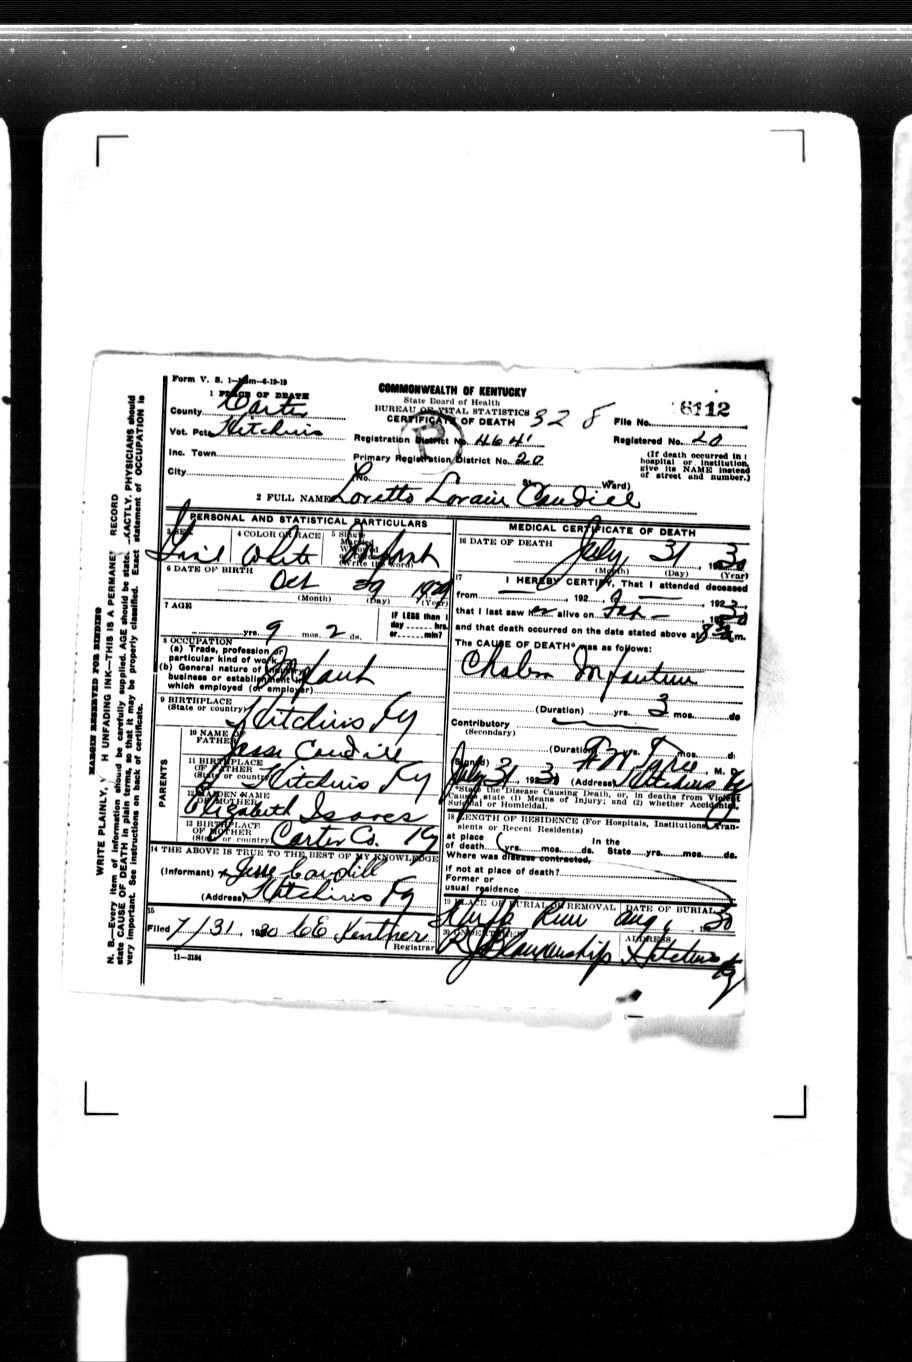 Form V. S. 1—
1 PLACE OF DEATH
County Carter
Vot. Pct. Hitchins
Inc. Town
City
COMMONWEALTH OF KENTUCKY
State Board of Health
BUREAU OF VITAL STATISTICS
CERTIFICATE OF DEATH 328
Registration District No. 4641
Primary Registration District No. 20
No. St., Ward)
File No. 6112
Registered No. 20
(If death occurred in
hospital or institution,
give its NAME instead
of street and number.)
R
2 FULL NAME Loretto Lorain Caudill
PERSONAL AND STATISTICAL PARTICULARS
3 SEX
Girl
4 COLOR OR RACE
White
5 Single
Married
(Write the word)
Infant
6 DATE OF BIRTH
Oct 29 1929
(Month) (Day) (Year)
7 AGE
yrs. 9 mos. 2 ds.
IF LESS than 1
day hrs.
or min?
8 OCCUPATION
(a) Trade, profession or
particular kind of work
(b) General nature of industry,
business or establishment in
which employed (or employer)
Infant
9 BIRTHPLACE
(State or country)
Hitchins Ky
PARENTS
10 NAME OF
FATHER
Jesse Caudill
11 BIRTHPLACE
OF FATHER
(State or country)
Hitchins Ky
12 MAIDEN NAME
OF MOTHER
Elizabeth Isaacs
13 BIRTHPLACE
OF MOTHER
(State or country)
Carter Co. Ky
14 THE ABOVE IS TRUE TO THE BEST OF MY KNOWLEDGE
(Informant) Jesse Caudill
(Address) Hitchins Ky
15
Filed 7/31, 1930 CE Registrar
11—3184
MEDICAL CERTIFICATE OF DEATH
16 DATE OF DEATH
July 31 30
(Month) (Day) (Year)
17 I HEREBY CERTIFY, That I attended deceased
from , 192 , to , 192 ,
that I last saw h alive on , 1930
and that death occurred on the date stated above at 8 a m.
The CAUSE OF DEATH* was as follows:
Infantum
(Duration) yrs. 3 mos. ds
Contributory
(Secondary)
(Duration) yrs. mos. d
(Signed) M. D
July 31 1930 (Address) Hitchins Ky
*State the Disease Causing Death, or, in deaths from Violent
Causes state (1) Means of Injury; and (2) whether Accidental,
Suicidal or Homicidal.
18 LENGTH OF RESIDENCE (For Hospitals, Institutions, Tran-
sients or Recent Residents)
at place In the
of death yrs. mos. ds. State yrs. mos. ds.
Where was disease contracted,
if not at place of death?
Former or
usual residence
19 PLACE OF BURIAL OR REMOVAL DATE OF BURIAL
Aug 1930
20 UNDERTAKER ADDRESS
Hitchins Ky
MARGIN RESERVED FOR BINDING
WRITE PLAINLY, H UNFADING INK—THIS IS A PERMANE RECORD
N. B.—Every item of information should be carefully supplied. AGE should be state XACTLY. PHYSICIANS should
state CAUSE OF DEATH in plain terms, so that it may be properly classified. Exact statement of OCCUPATION is
very important. See instructions on back of certificate.